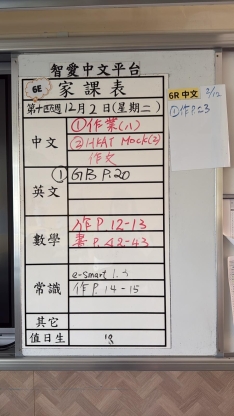 智愛中文平台
6E
家課表
第十四週 12月2日(星期二)
中文
①作業(八)
②HKAT Mock(2)
作文
英文
①GB P.20
數學
作P.12-13
書P.42-43
常識
e-smart 1.
作P.14-15
其它
值日生
18
6R 中文 2/12
①作P.23